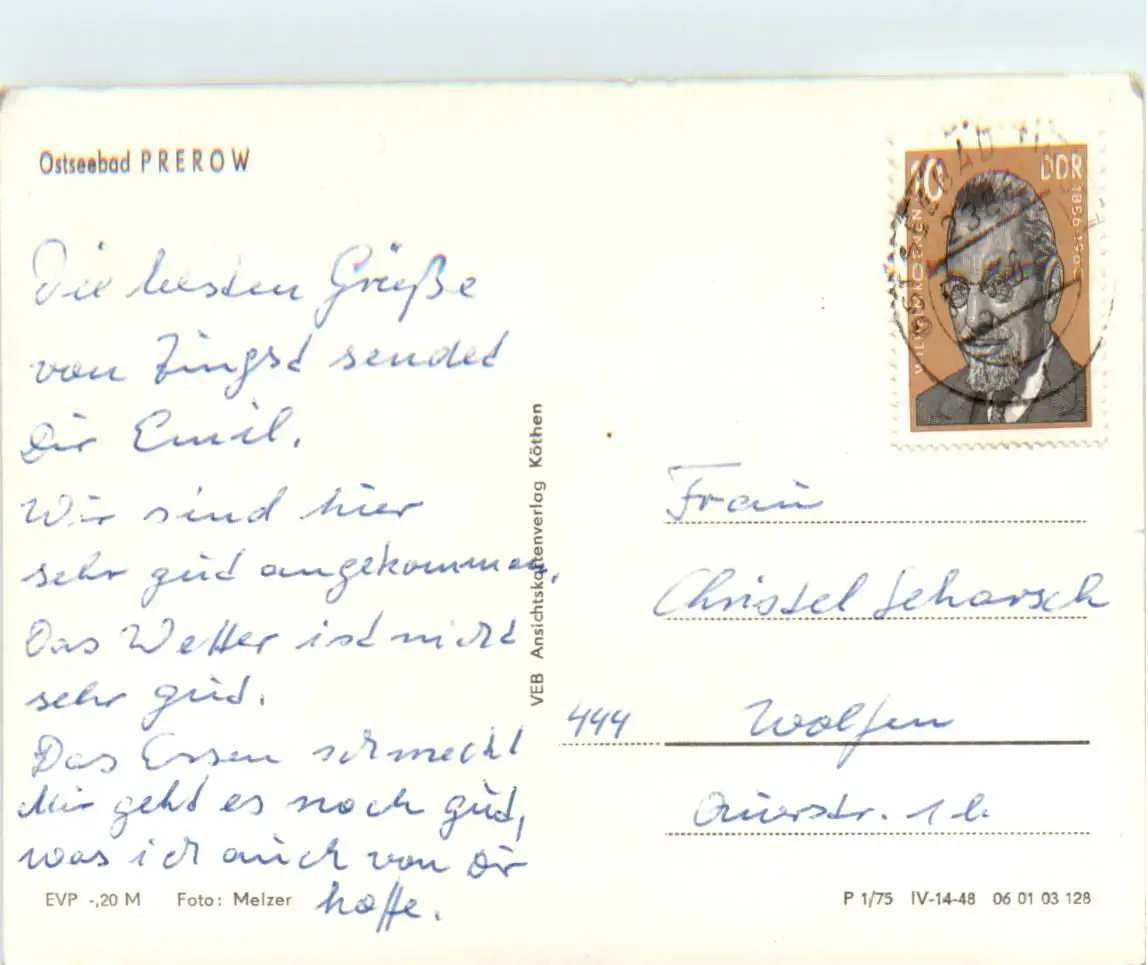 Ostseebad PREROW
Die besten Grüße
von Zingst sendet
Dir Emil.
Wir sind hier
sehr gut angekommen.
Das Wetter ist nicht
sehr gut.
Das Essen schmeckt
Mir geht es noch gut,
was ich auch von Dir
hoffe.
EVP -,20 M Foto: Melzer
VEB Ansichtskartenverlag Köthen
10 DDR
WILHELM KOENEN
Frau
Christel Scharsch
444 Wolfen
P 1/75 IV-14-48 06 01 03 128